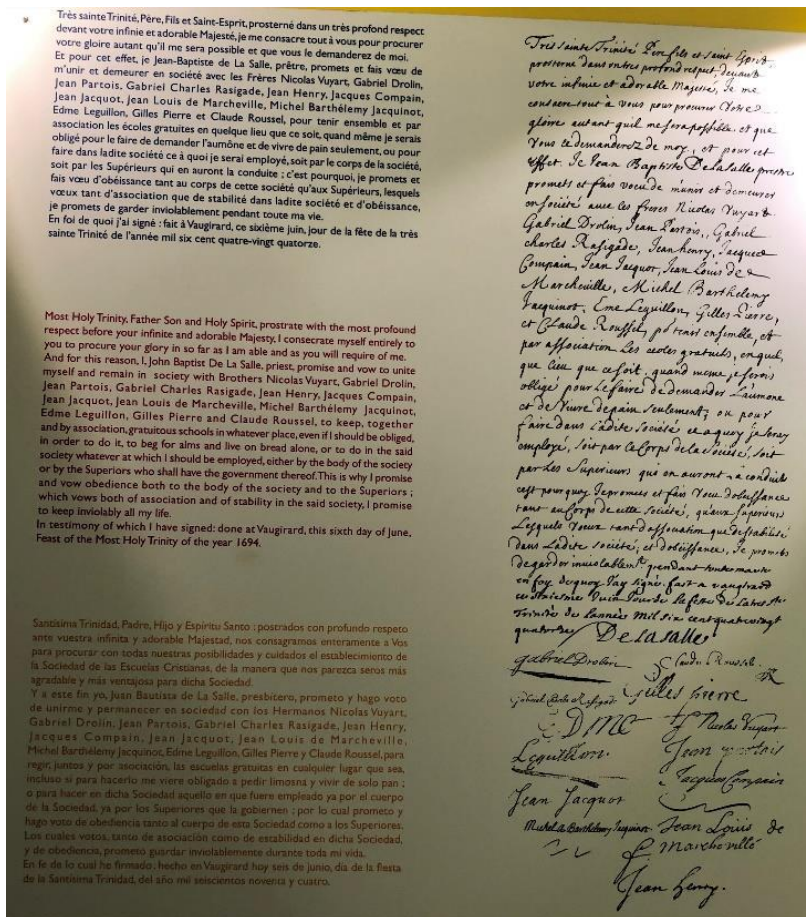 Très sainte Trinité, Père, Fils et Saint-Esprit, prosterné dans un très profond respect
devant votre infinie et adorable Majesté, je me consacre tout à vous pour procurer
votre gloire autant qu'il me sera possible et que vous le demanderez de moi.
Et pour cet effet, je Jean-Baptiste de La Salle, prêtre, promets et fais vœu de
m'unir et demeurer en société avec les Frères Nicolas Vuyart, Gabriel Drolin,
Jean Partois, Gabriel Charles Rasigade, Jean Henry, Jacques Compain,
Jean Jacquot, Jean Louis de Marcheville, Michel Barthélemy Jacquinot,
Edme Leguillon, Gilles Pierre et Claude Roussel, pour tenir ensemble et par
association les écoles gratuites en quelque lieu que ce soit, quand même je serais
obligé pour le faire de demander l'aumône et de vivre de pain seulement, ou pour
faire dans ladite société ce à quoi je serai employé, soit par le corps de la société,
soit par les Supérieurs qui en auront la conduite ; c'est pourquoi, je promets et
fais vœu d'obéissance tant au corps de cette société qu'aux Supérieurs, lesquels
vœux tant d'association que de stabilité dans ladite société et d'obéissance,
je promets de garder inviolablement pendant toute ma vie.
En foi de quoi j'ai signé : fait à Vaugirard, ce sixième juin, jour de la fête de la très
sainte Trinité de l'année mil six cent quatre-vingt quatorze.
Most Holy Trinity, Father Son and Holy Spirit, prostrate with the most profound
respect before your infinite and adorable Majesty, I consecrate myself entirely to
you to procure your glory in so far as I am able and as you will require of me.
And for this reason, I, John Baptist De La Salle, priest, promise and vow to unite
myself and remain in society with Brothers Nicolas Vuyart, Gabriel Drolin,
Jean Partois, Gabriel Charles Rasigade, Jean Henry, Jacques Compain,
Jean Jacquot, Jean Louis de Marcheville, Michel Barthélemy Jacquinot,
Edme Leguillon, Gilles Pierre and Claude Roussel, to keep, together
and by association, gratuitous schools in whatever place, even if I should be obliged,
in order to do it, to beg for alms and live on bread alone, or to do in the said
society whatever at which I should be employed, either by the body of the society
or by the Superiors who shall have the government thereof. This is why I promise
and vow obedience both to the body of the society and to the Superiors ;
which vows both of association and of stability in the said society, I promise
to keep inviolably all my life.
In testimony of which I have signed: done at Vaugirard, this sixth day of June,
Feast of the Most Holy Trinity of the year 1694.
Santísima Trinidad, Padre, Hijo y Espíritu Santo : postrados con profundo respeto
ante vuestra infinita y adorable Majestad, nos consagramos enteramente a Vos
para procurar con todas nuestras posibilidades y cuidados el establecimiento de
la Sociedad de las Escuelas Cristianas, de la manera que nos parezca seros más
agradable y más ventajosa para dicha Sociedad.
Y a este fin yo, Juan Bautista de La Salle, presbítero, prometo y hago voto
de unirme y permanecer en sociedad con los Hermanos Nicolas Vuyart,
Gabriel Drolin, Jean Partois, Gabriel Charles Rasigade, Jean Henry,
Jacques Compain, Jean Jacquot, Jean Louis de Marcheville,
Michel Barthélemy Jacquinot, Edme Leguillon, Gilles Pierre y Claude Roussel, para
regir, juntos y por asociación, las escuelas gratuitas en cualquier lugar que sea,
incluso si para hacerlo me viere obligado a pedir limosna y vivir de solo pan ;
o para hacer en dicha Sociedad aquello en que fuere empleado ya por el cuerpo
de la Sociedad, ya por los Superiores que la gobiernen ; por lo cual prometo y
hago voto de obediencia tanto al cuerpo de esta Sociedad como a los Superiores.
Los cuales votos, tanto de asociación como de estabilidad en dicha Sociedad,
y de obediencia, prometo guardar inviolablemente durante toda mi vida.
En fe de lo cual he firmado ; hecho en Vaugirard hoy seis de junio, día de la fiesta
de la Santísima Trinidad, del año mil seiscientos noventa y cuatro.
Tres sainte Trinité Pere fils et saint Esprit
prosterné dans un tres profond respect devant
votre infinie et adorable Majesté, Je me
consacre tout a vous pour procurer votre
gloire autant quil me sera possible et que
vous le demanderez de moy, et pour cet
effet Je Jean Baptiste De la Salle prestre
promets et fais voeu de munir et demeurer
en société avec les freres Nicolas Vuyart
Gabriel Drolin, Jean Partois, Gabriel
charles Rasigade, Jean henry, Jacques
Compain, Jean Jacquot, Jean Louis de
Marcheville, Michel Barthelemy
Jacquinot, Eme Leguillon, Gilles Pierre,
et Claude Roussel, pr tenir ensemble, et
par association Les ecoles gratuites, en quel,
que lieu que ce soit, quand meme je serois
obligé pour le faire de demander L'aumone
et de vivre de pain seulement; ou pour
faire dans Ladite société ce a quoy je seray
employé, soit par le Corps de la Société, soit
par Les Superieurs qui en auront la conduite
cest pourquoy Je promes et fais voeu dobeissance
tant au Corps de cette société, quaux superieurs
Lesquels voeux tant dassociation que de stabilité
dans Ladite société, et dobeissance, Je promets
de garder inviolablemt pendant toute ma vie
en foy de quoy Jay signé. fait a vaugirard
ce sixiesme Juin Jour de la feste de la tres ste
Trinité de Lannée Mil six cent quatre vingt
quatorze De la salle
Gabriel Drolin Claude Roussel
Gabriel Charle Rasigade Gilles Pierre
EDME Nicolas Vuyart
Leguillon. Jean partois
Jacques Compain
Jean Jacquot
Michel Barthelemy Jacquinot Jean Louis de
Marchevillé
Jean henry.